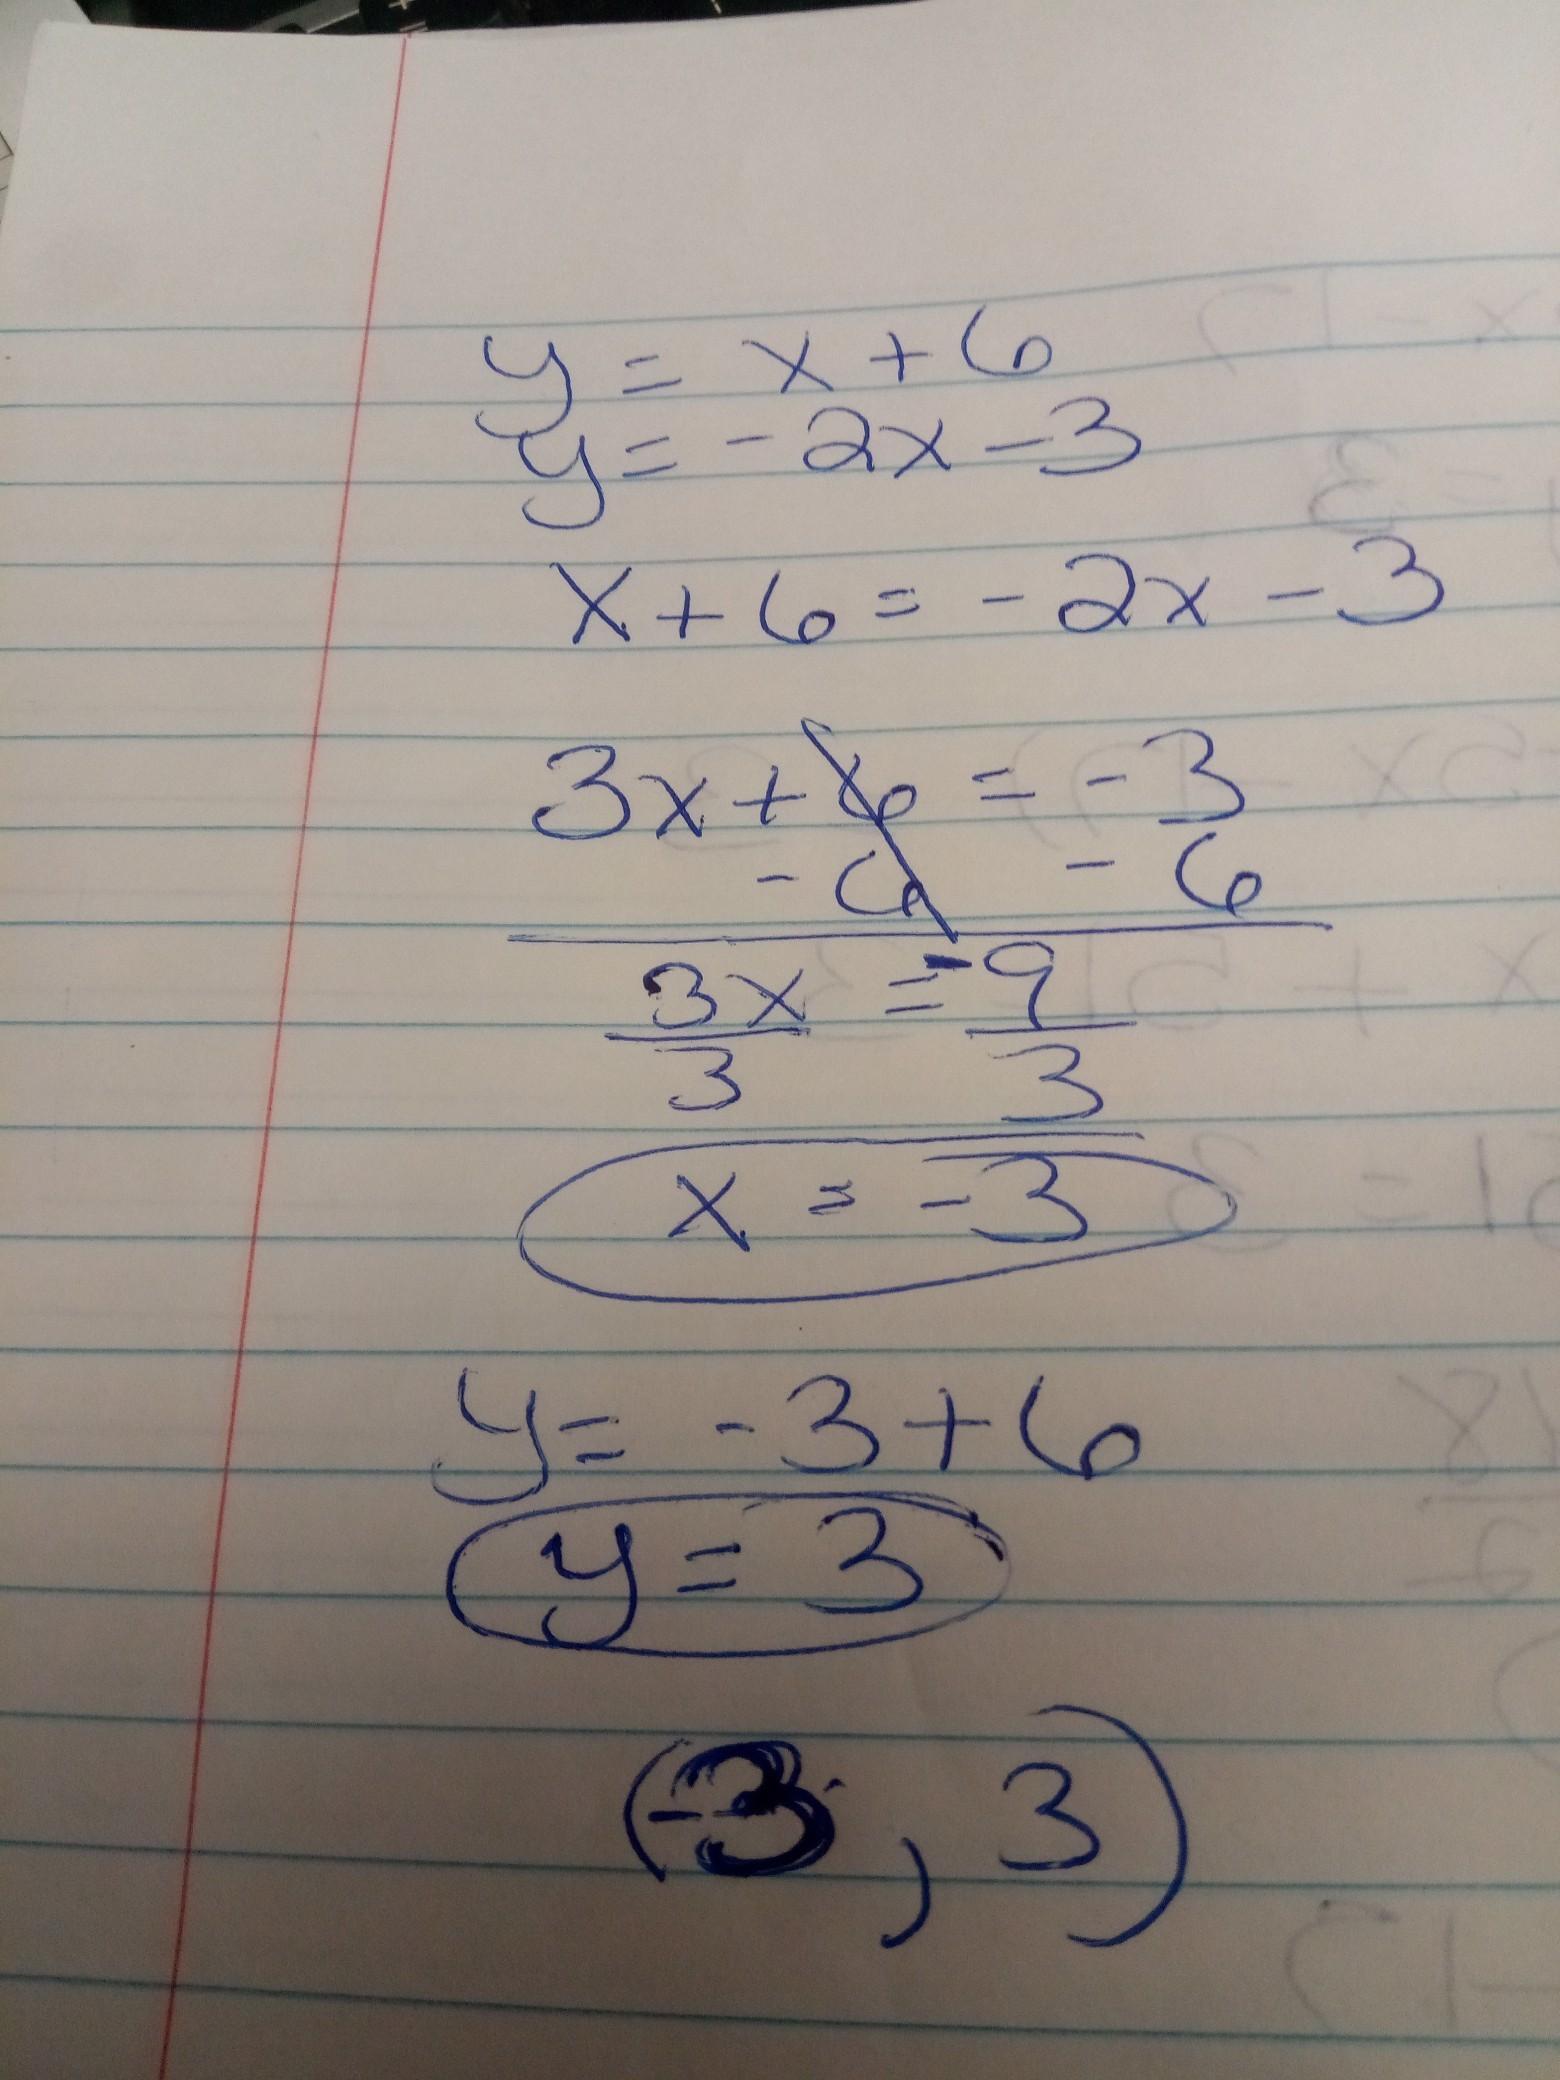 y = x + 6
y = -2x - 3
x + 6 = -2x - 3
3x + 6 = -3
- 6 - 6
3x = -9
3 3
x = -3
y = -3 + 6
y = 3
(-3, 3)